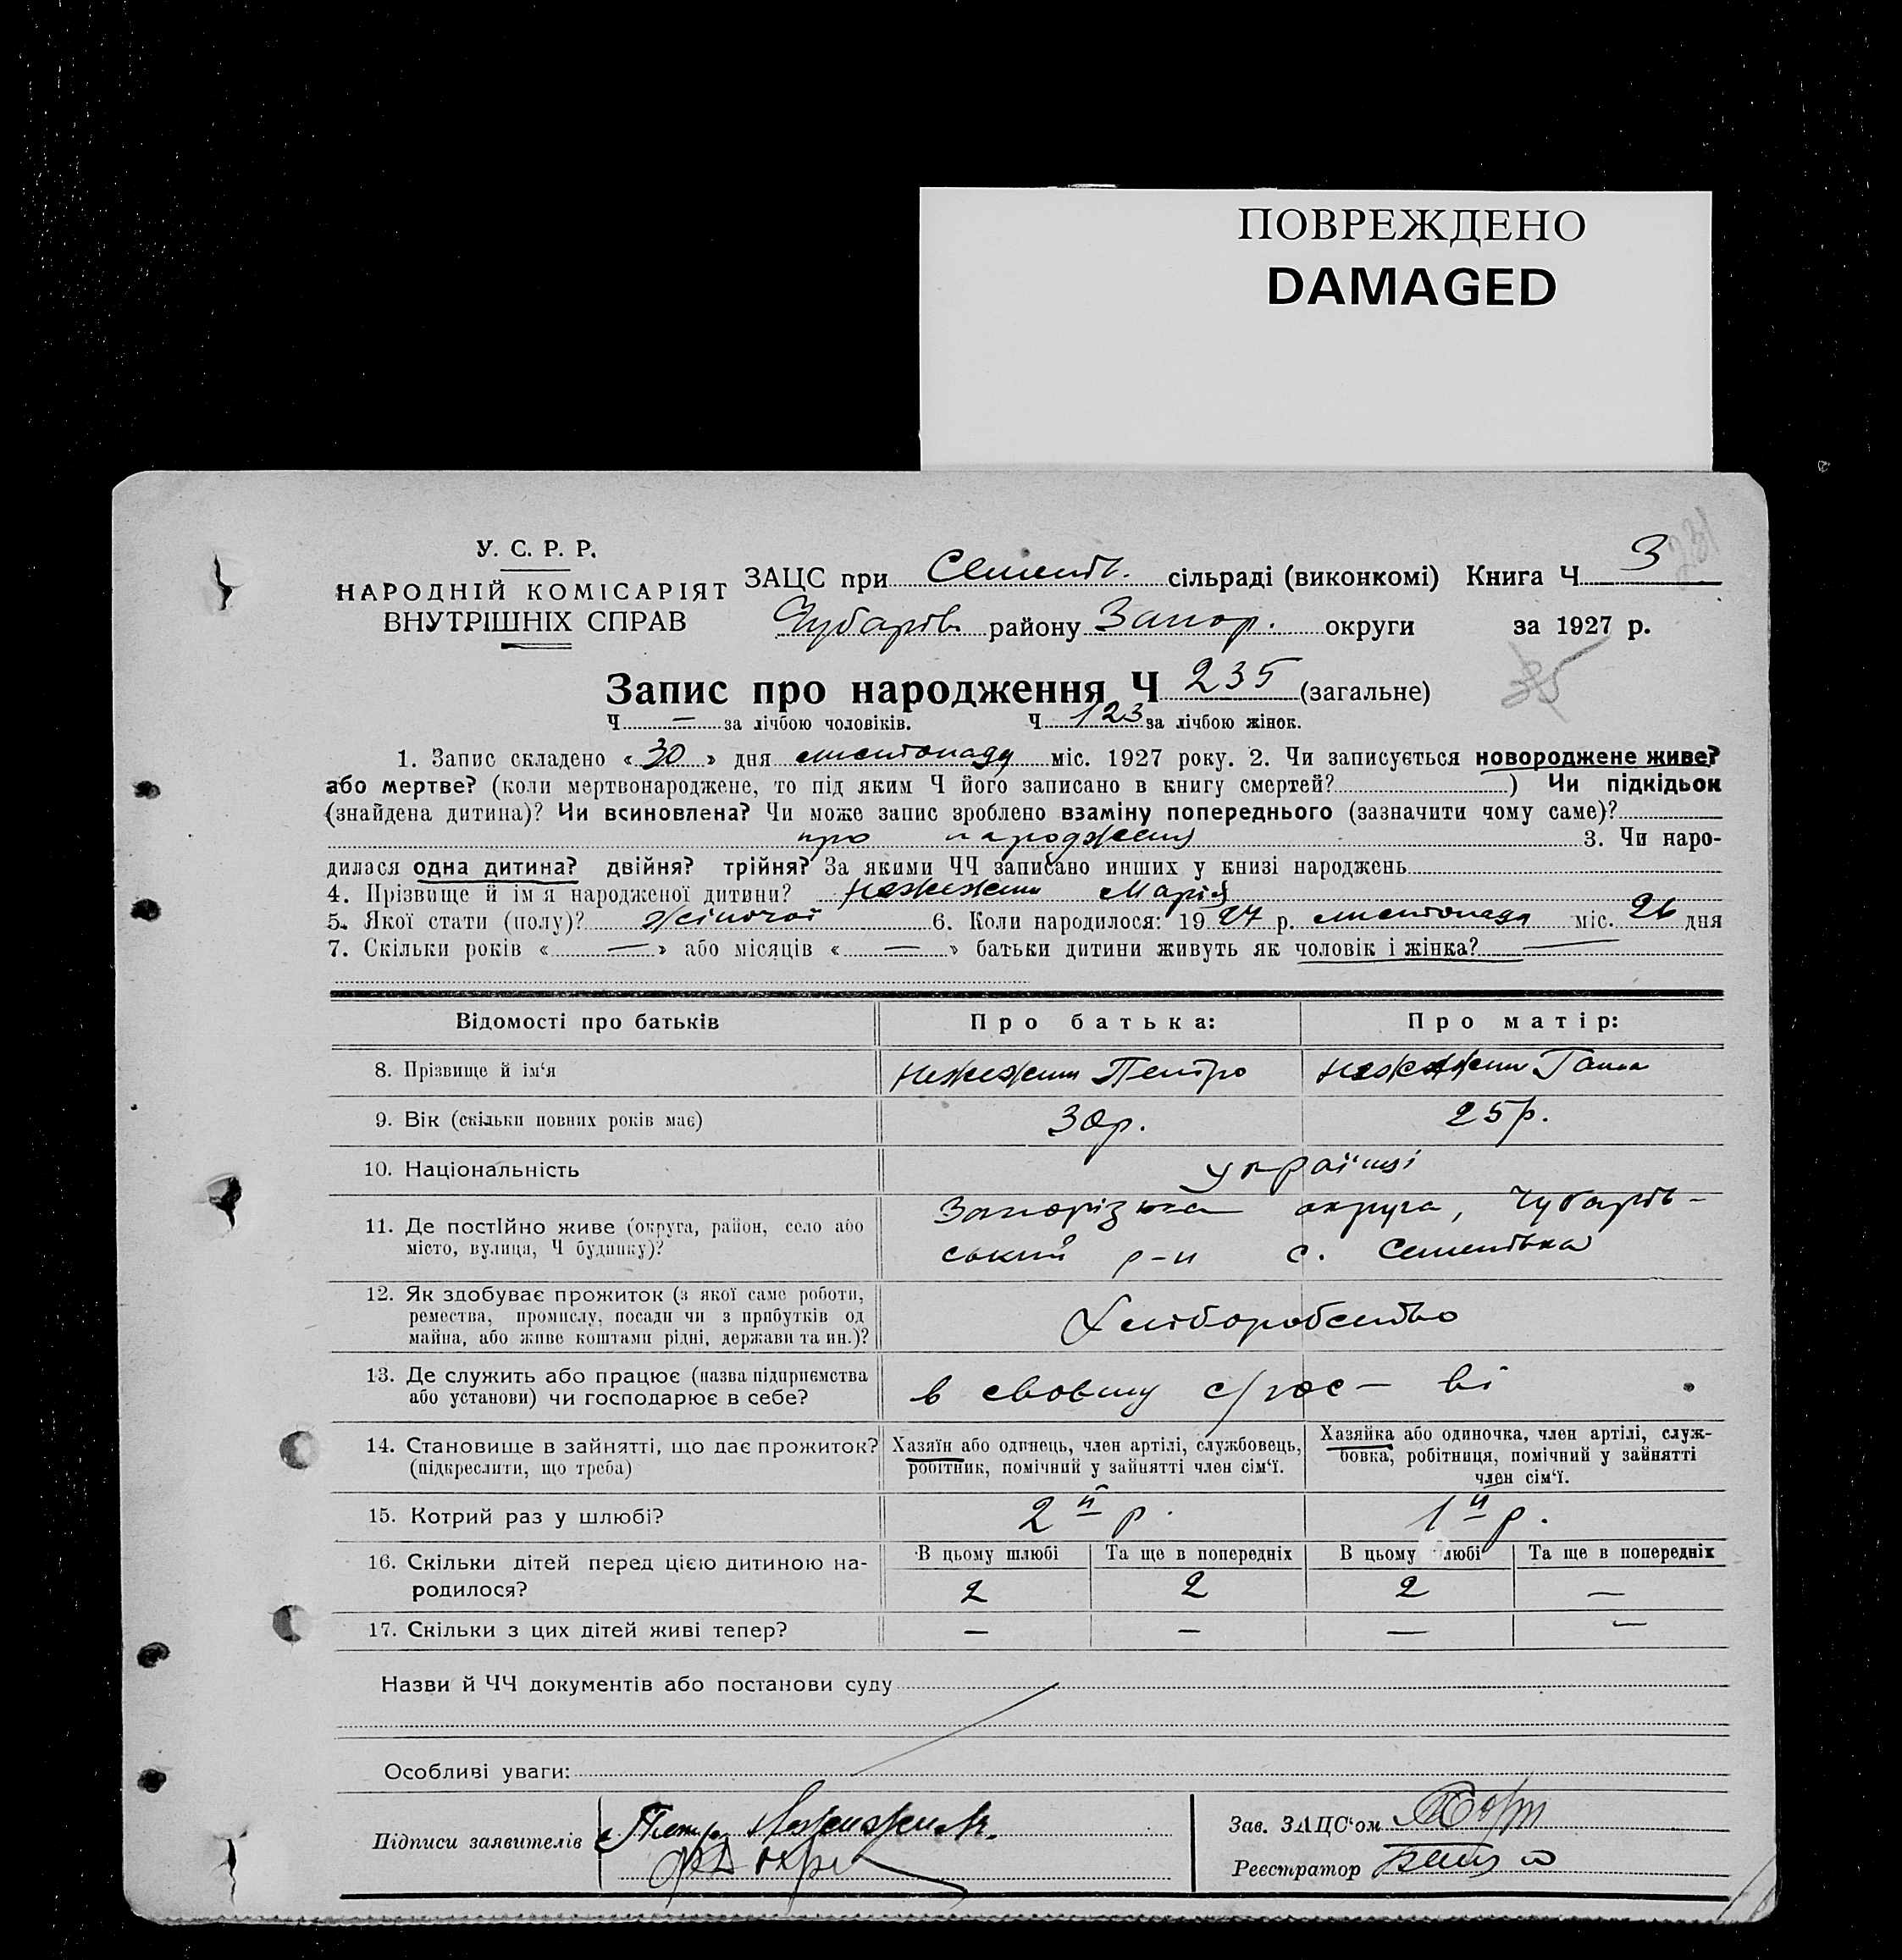 ПОВРЕЖДЕНО
DAMAGED
231
У. С. Р. Р.
НАРОДНІЙ КОМІСАРІЯТ
ВНУТРІШНІХ СПРАВ
ЗАЦС при Семенів. сільраді (виконкомі) Книга Ч 3
Чубарів. району Запор. округи за 1927 р.
Запис про народження Ч 235 (загальне)
Ч — за лічбою чоловіків. Ч 123 за лічбою жінок.
1. Запис складено « 30 » дня листопада міс. 1927 року. 2. Чи записується новороджене живе?
або мертве? (коли мертвонароджене, то під яким Ч його записано в книгу смертей? ) Чи підкідьок
(знайдена дитина)? Чи всиновлена? Чи може запис зроблено взаміну попереднього (зазначити чому саме)?
про народження 3. Чи наро-
дилася одна дитина? двійня? трійня? За якими ЧЧ записано инших у книзі народжень
4. Прізвище й ім я народженої дитини? Нежижим Марія
5. Якої стати (полу)? жіночої 6. Коли народилося: 1927 р. листопада міс. 26 дня
7. Скільки років « — » або місяців « — » батьки дитини живуть як чоловік і жінка? —
Відомості про батьків Про батька: Про матір:
8. Прізвище й ім‘я Нежижим Петро Нежижим Ганна
9. Вік (скільки повних років має) 30р. 25р.
10. Національність українці
11. Де постійно живе (округа, район, село або
місто, вулиця, Ч будинку)?
Запорізька округа, Чубарів-
ський р-н с. Семенівка
12. Як здобуває прожиток (з якої саме роботи,
ремества, промислу, посади чи з прибутків од
майна, або живе коштами рідні, держави та ин.)?
Хліборобство
13. Де служить або працює (назва підприємства
або установи) чи господарює в себе?
в своєму с/гос-ві
14. Становище в зайнятті, що дає прожиток?
(підкреслити, що треба)
Хазяїн або одинець, член артілі, службовець,
робітник, помічний у зайнятті член сім‘ї.
Хазяйка або одиночка, член артілі, служ-
бовка, робітниця, помічний у зайнятті
член сім‘ї.
15. Котрий раз у шлюбі? 2й р. 1й р.
16. Скільки дітей перед цією дитиною на-
родилося?
В цьому шлюбі Та ще в попередніх В цьому шлюбі Та ще в попередніх
2 2 2 —
17. Скільки з цих дітей живі тепер? — — — —
Назви й ЧЧ документів або постанови суду
Особливі уваги:
Підписи заявителів Петро
Зав. ЗАЦС‘ом
Реєстратор